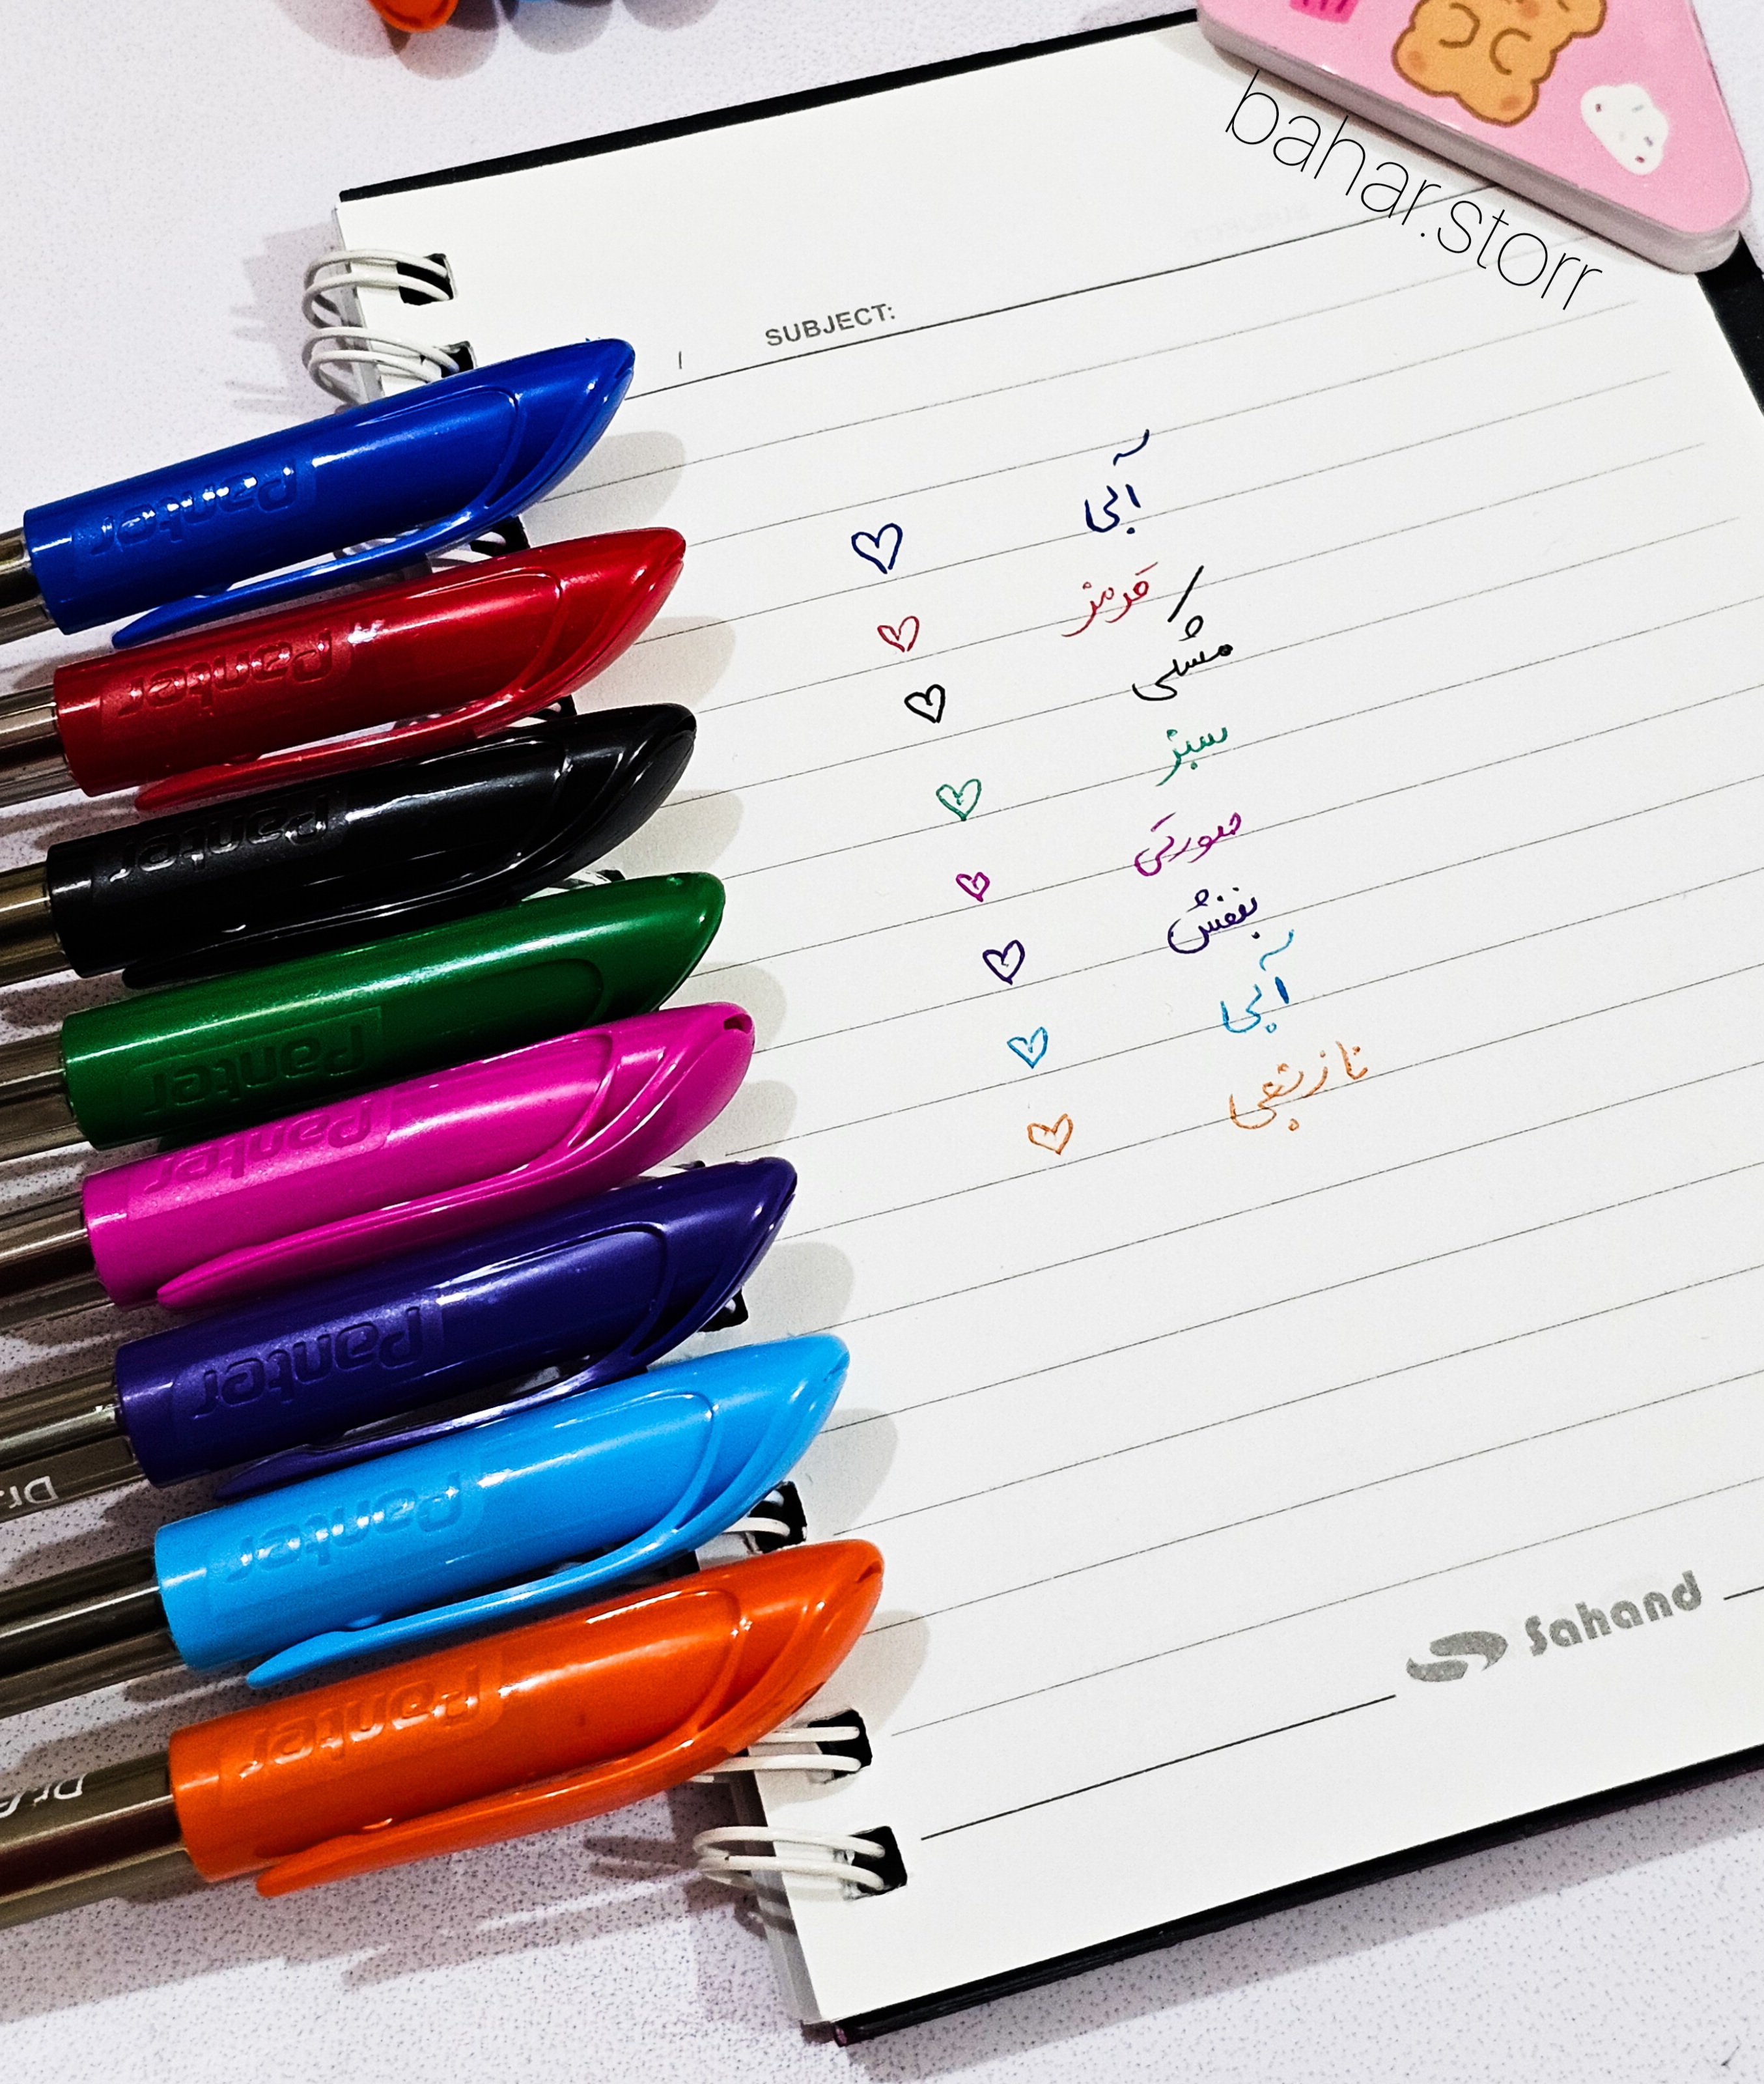 bahar.storr
SUBJECT:
آبی
قرمز
مشکی
سبز
صورتی
بنفش
آبی
نارنجی
Panter
Panter
Panter
Panter
Panter
Panter
Dr.
Panter
Panter
Dr.
Sahand